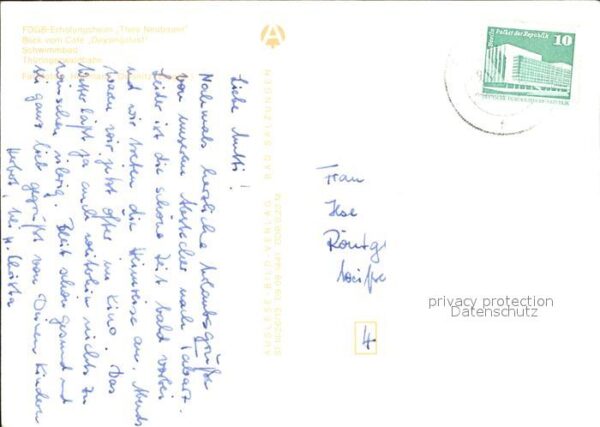 FDGB-Erholungsheim „Theo Neubauer“
Blick vom Café „Deysingslust“
Schwimmbad
Thüringerwaldbahn
AUSLESE-BILD-VERLAG
BAD SALZUNGEN
Berlin Palast der Republik
10
DEUTSCHE DEMOKRATISCHE REPUBLIK
Liebe Mutti!
Nochmals herzliche Urlaubsgrüße
von unserem Abstecher nach Tabarz.
Leider ist die schöne Zeit bald vorbei
und wir treten die Heimreise an. Abends
waren wir jetzt öfter im Kino. Das
Wetter läßt ja auch weiterhin nichts zu
wünschen übrig. Bleib schön gesund und
sei ganz lieb gegrüßt von Deinen Kindern
Frau
Ilse
4
privacy protection
Datenschutz